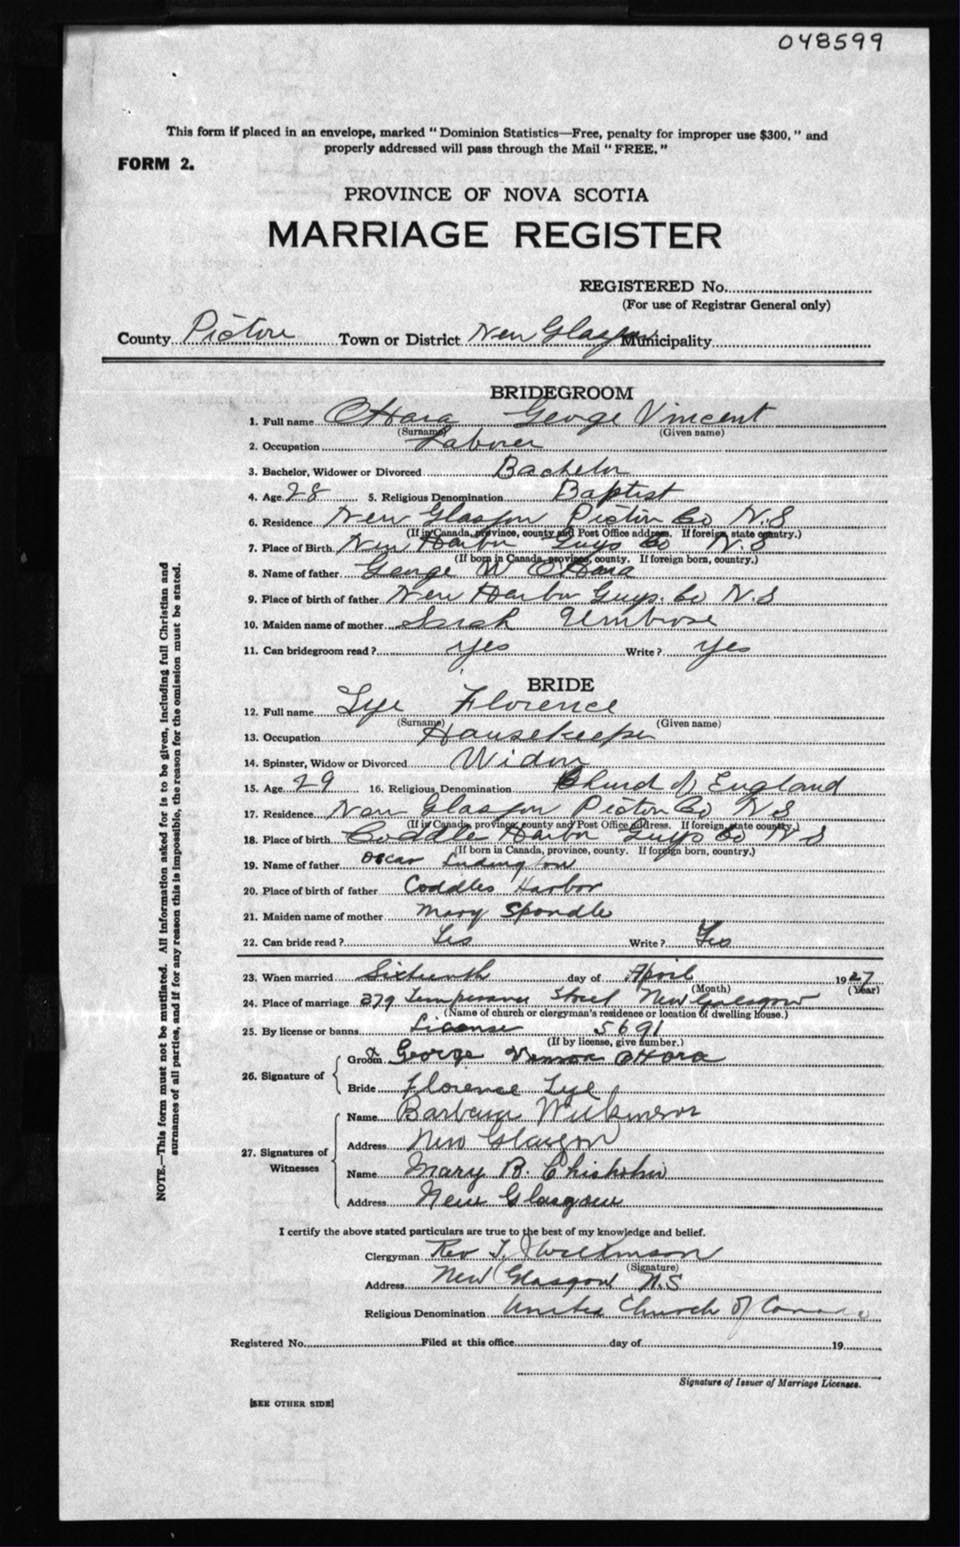 048599
This form if placed in an envelope, marked "Dominion Statistics—Free, penalty for improper use $300," and
properly addressed will pass through the Mail "FREE."
FORM 2.
PROVINCE OF NOVA SCOTIA
MARRIAGE REGISTER
REGISTERED No.
(For use of Registrar General only)
County Pictou Town or District New Glasgow Municipality
BRIDEGROOM
1. Full name OHara George Vincent
(Surname) (Given name)
2. Occupation Laborer
3. Bachelor, Widower or Divorced Bachelor
4. Age 28 5. Religious Denomination Baptist
6. Residence New Glasgow Pictou Co N.S
(If in Canada, province, county and Post Office address. If foreign, state country.)
7. Place of Birth New Harbor Guys Co N.S
(If born in Canada, province, county. If foreign born, country.)
8. Name of father George W OHara
9. Place of birth of father New Harbor Guys. Co N.S
10. Maiden name of mother Sarah
11. Can bridegroom read? yes Write? yes
BRIDE
12. Full name Lye Florence
(Surname) (Given name)
13. Occupation Housekeeper
14. Spinster, Widow or Divorced Widow
15. Age 29 16. Religious Denomination Church of England
17. Residence New Glasgow Pictou Co N.S
(If in Canada, province, county and Post Office address. If foreign, state country.)
18. Place of birth Coddle Harbor Guys Co N.S
(If born in Canada, province, county. If foreign born, country.)
19. Name of father Oscar
20. Place of birth of father Coddles Harbor
21. Maiden name of mother Mary Spondle
22. Can bride read? Yes Write? Yes
23. When married Sixteenth day of April 1927
(Month) (Year)
24. Place of marriage 279 Temperance Street New Glasgow
(Name of church or clergyman's residence or location of dwelling house.)
25. By license or banns License 5691
(If by license, give number.)
26. Signature of
Groom George OHara
Bride Florence Lye
27. Signatures of Witnesses
Name Barbara Wilkinson
Address New Glasgow
Name Mary B. Chisholm
Address New Glasgow
I certify the above stated particulars are true to the best of my knowledge and belief.
Clergyman Rev T. J Wilkinson
(Signature)
Address New Glasgow N.S
Religious Denomination United Church of Canada
Registered No. Filed at this office day of 19
Signature of Issuer of Marriage Licenses.
[SEE OTHER SIDE]
NOTE.—This form must not be mutilated. All information asked for is to be given, including full Christian and
surnames of all parties, and if for any reason this is impossible, the reason for the omission must be stated.